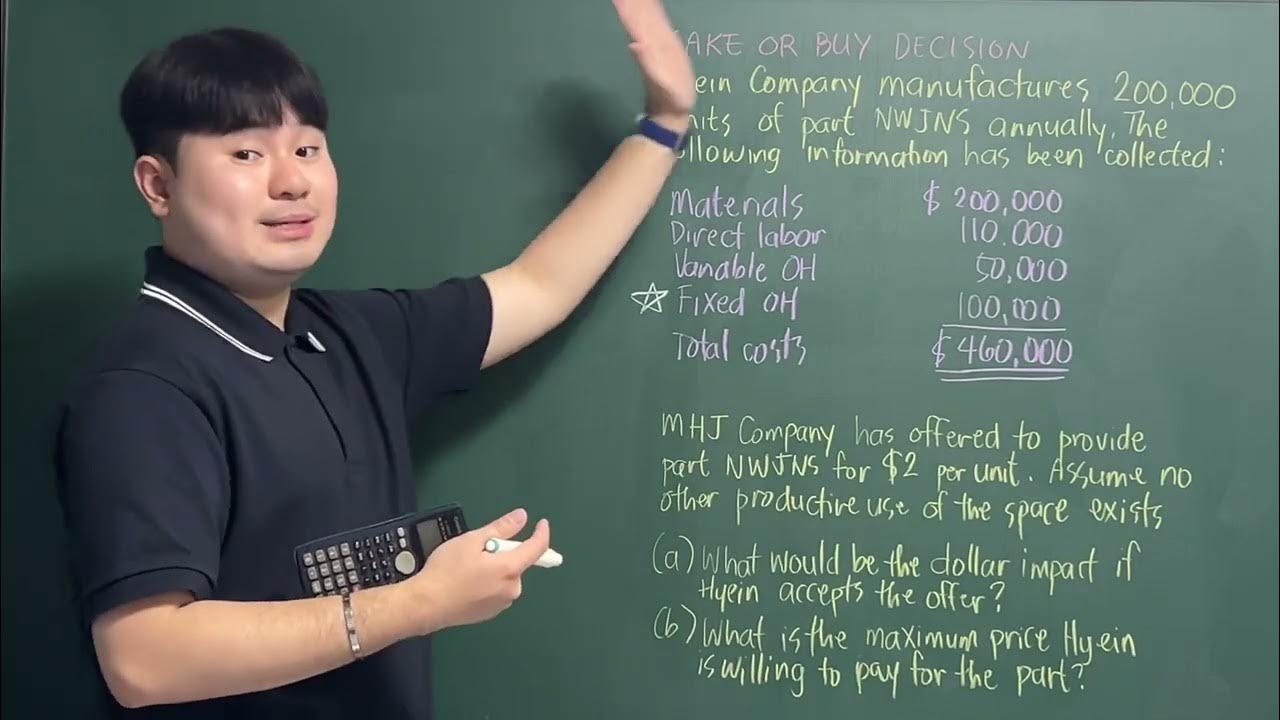 AKE OR BUY DECISION
ein Company manufactures 200,000
nits of part NWJNS annually. The
ollowing information has been collected:
Materials $ 200,000
Direct labor 110.000
Variable OH 50,000
☆ Fixed OH 100,000
Total costs $ 460,000
MHJ Company has offered to provide
part NWJNS for $2 per unit. Assume no
other productive use of the space exists
(a) What would be the dollar impact if
Hyein accepts the offer?
(b) What is the maximum price Hyein
is willing to pay for the part?